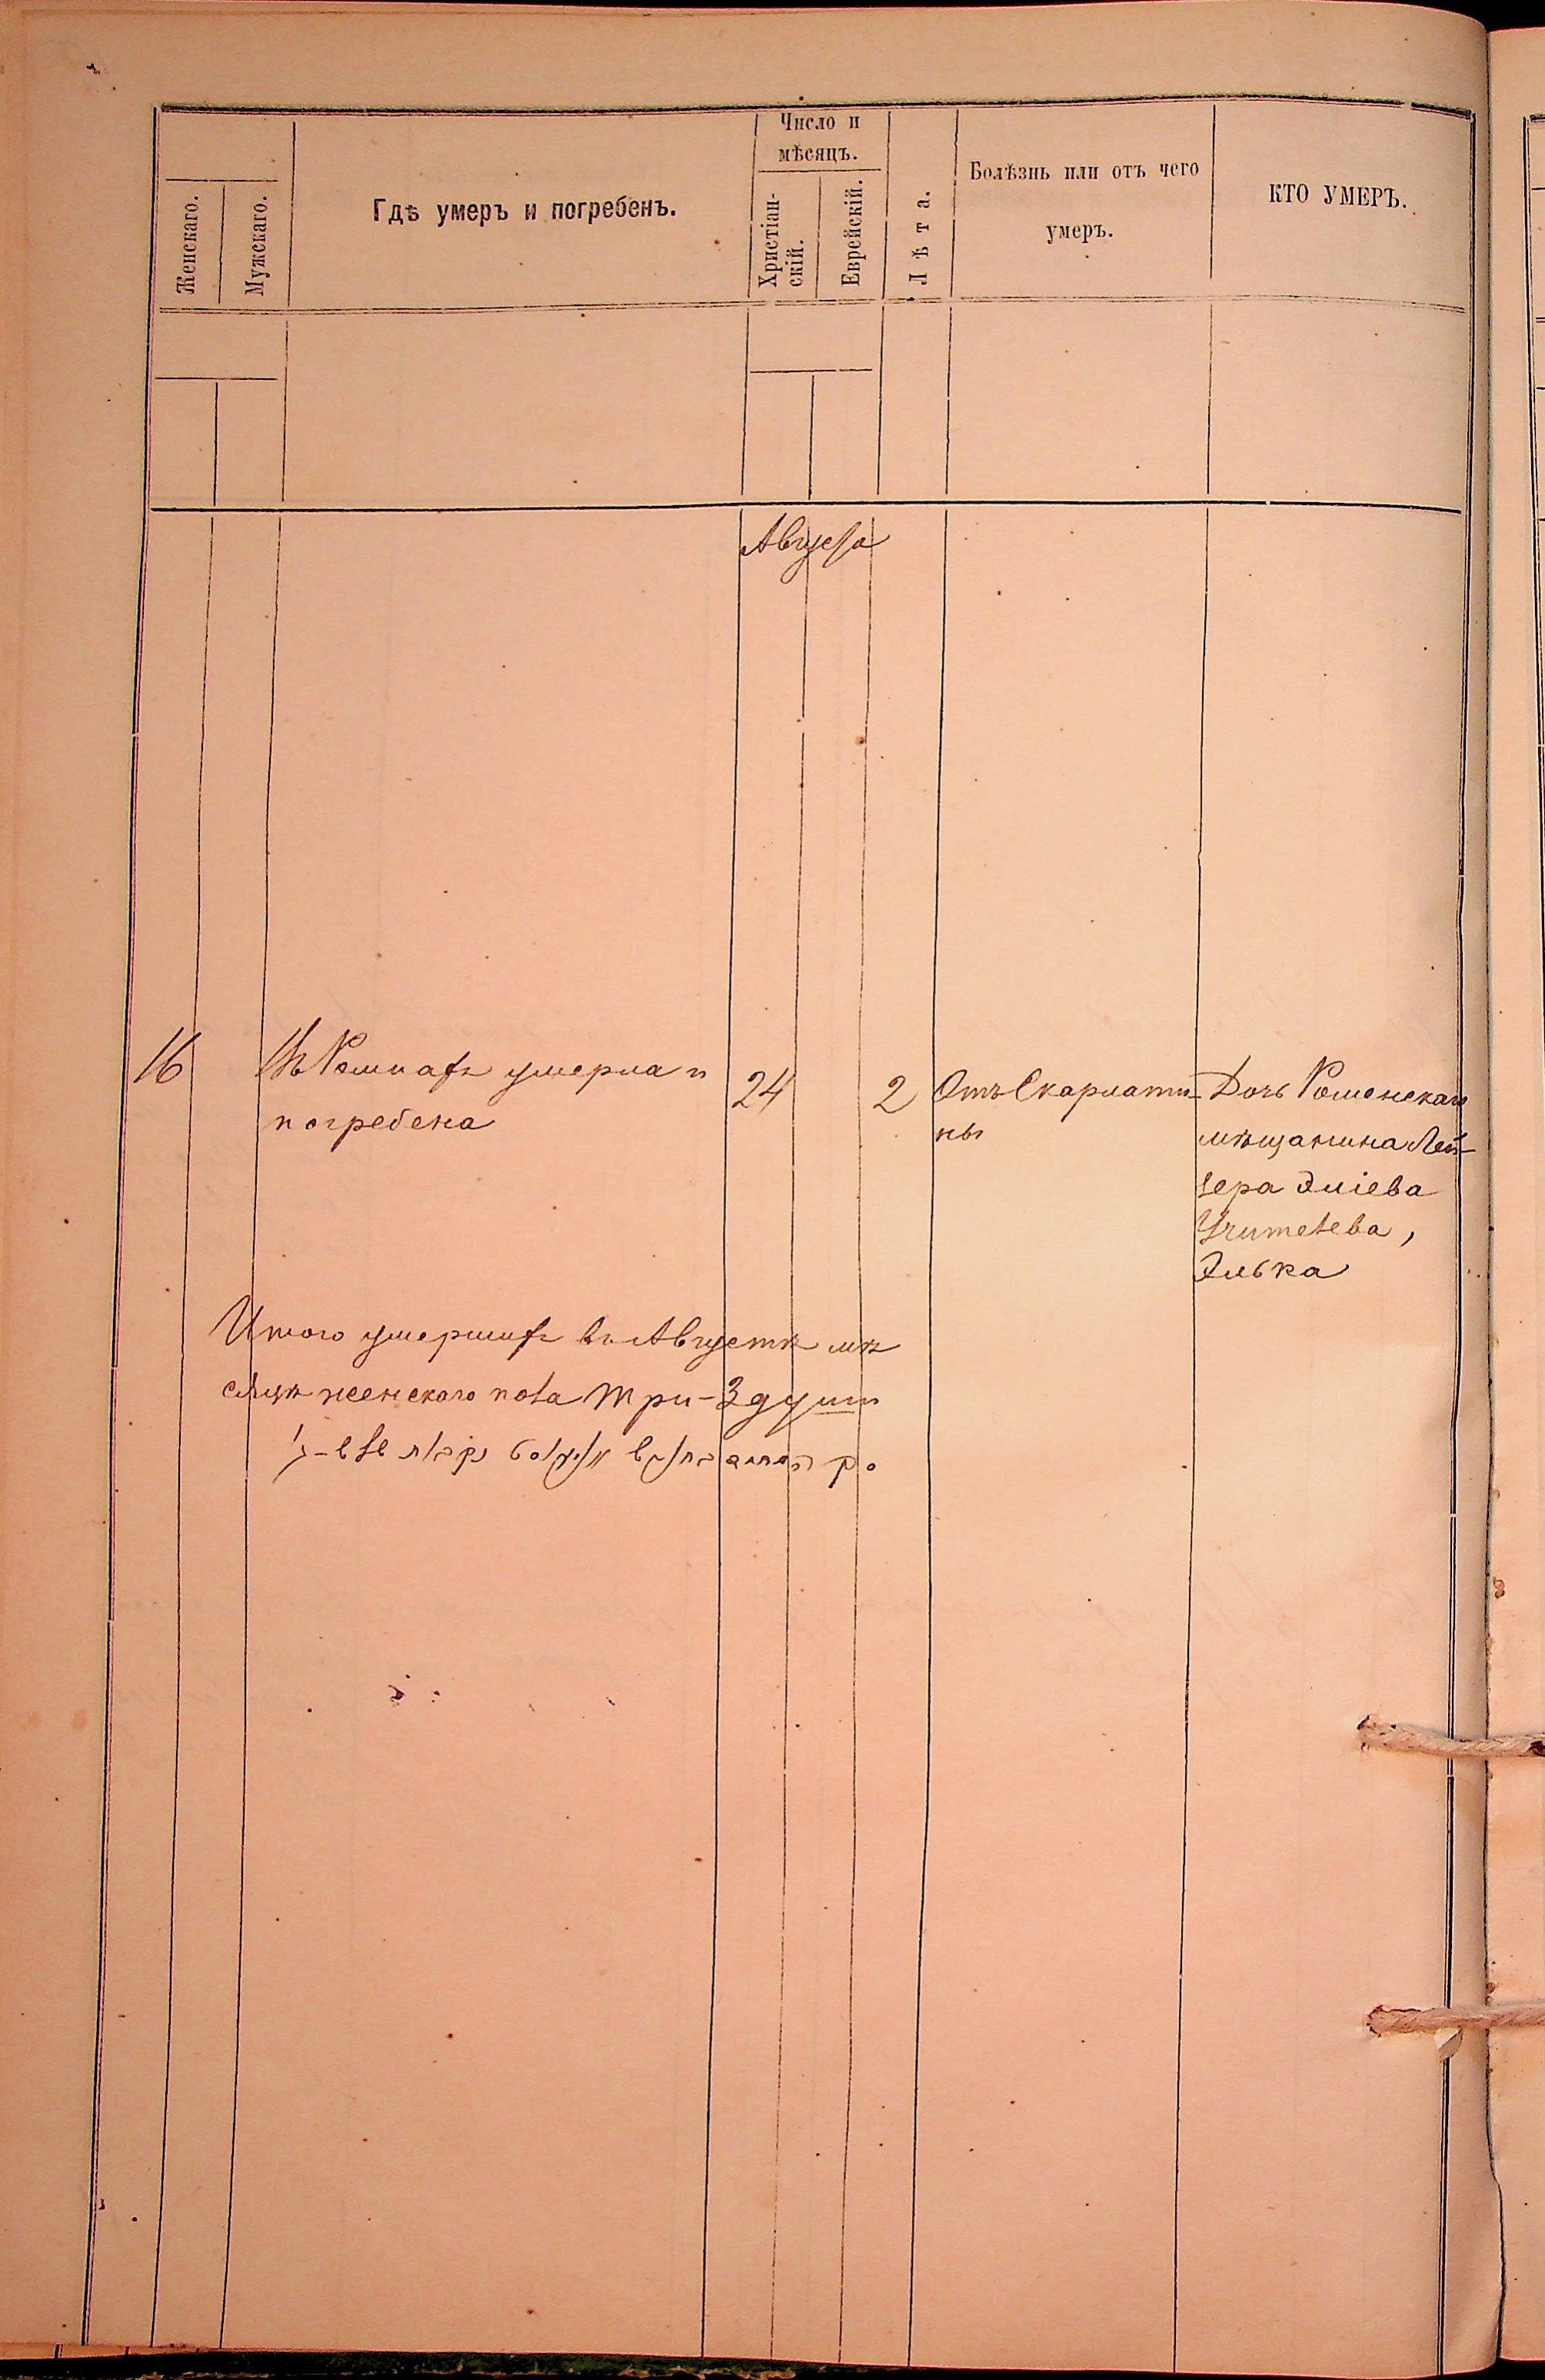 Женскаго.
Мужскаго.
Гдѣ умеръ и погребенъ.
Число и
мѣсяцъ.
Христіан-
скій.
Еврейскій.
Лѣта.
Болѣзнь или отъ чего
умеръ.
КТО УМЕРЪ.
Августа
16
Въ Ромнахъ умерла и
погребена
24
2
Отъ Скарлати-
ны
Дочь Роменскаго
мѣщанина Лей-
зера Эліева
Учителева,
Элька
Итого умершихъ въ Августѣ мѣ
сяцѣ женскаго пола три-3 душъ